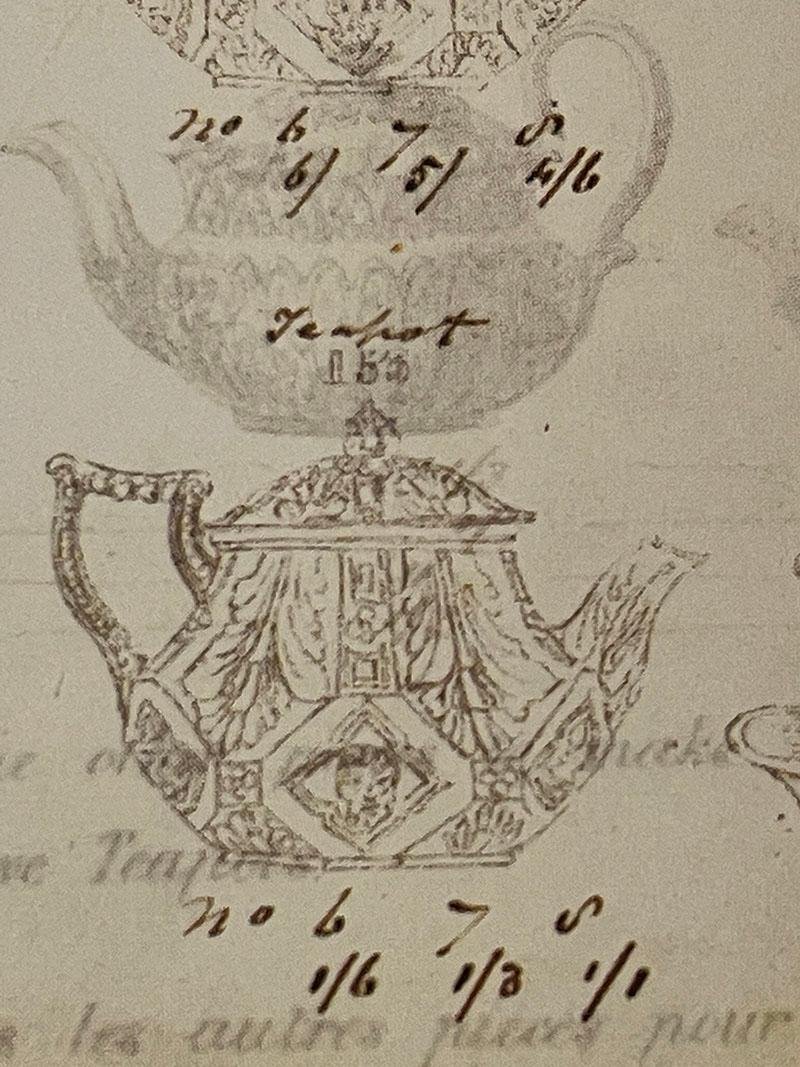 no 6 7 8
6/ 5/ 4/6
Teapot
153
no 6 7 8
1/6 1/3 1/1
Teapots
les autres pieces pour